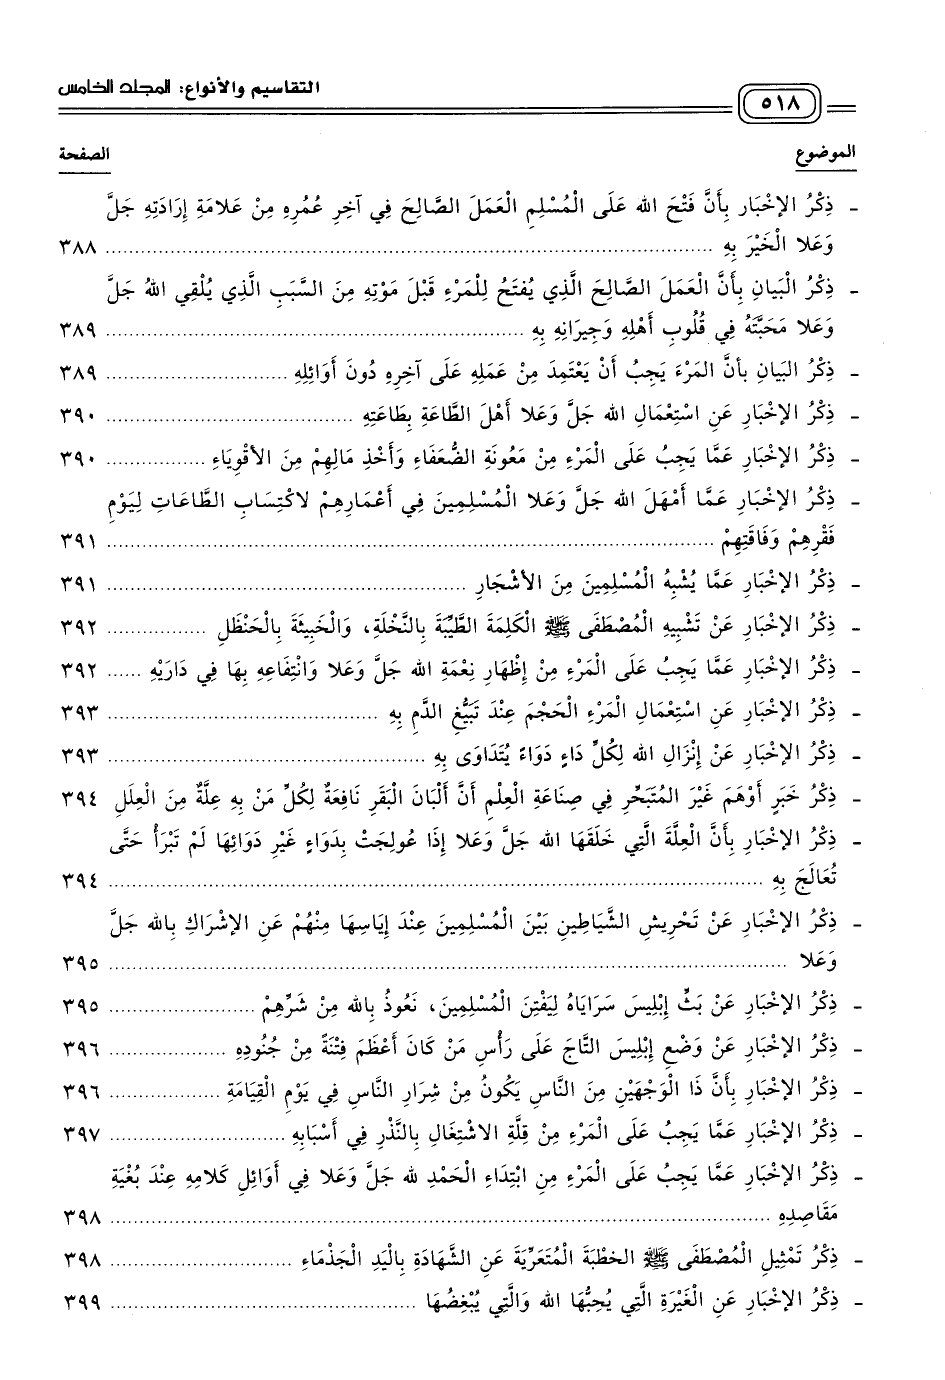 التقاسيم والأنواع: المجلد الخامس
٥١٨
الموضوع الصفحة
- ذِكْرُ الإخْبَارِ بِأَنَّ فَتْحَ الله عَلَى الْمُسْلِمِ الْعَمَلَ الصَّالِحَ فِي آخِرِ عُمُرِهِ مِنْ عَلامَةِ إِرَادَتِهِ جَلَّ
وَعَلا الْخَيْرَ بِهِ ........ ٣٨٨
- ذِكْرُ الْبَيَانِ بِأَنَّ الْعَمَلَ الصَّالِحَ الَّذِي يُفْتَحُ لِلْمَرْءِ قَبْلَ مَوْتِهِ مِنَ السَّبَبِ الَّذِي يُلْقِي اللهُ جَلَّ
وَعَلا مَحَبَّتَهُ فِي قُلُوبِ أَهْلِهِ وَجِيرَانِهِ بِهِ ........ ٣٨٩
- ذِكْرُ البَيَانِ بأنَّ المَرْءَ يَجِبُ أَنْ يَعْتَمِدَ مِنْ عَمَلِهِ عَلَى آخِرِهِ دُونَ أَوَائِلِهِ ........ ٣٨٩
- ذِكْرُ الإخْبَارِ عَنِ اسْتِعْمَالِ الله جَلَّ وَعَلا أَهْلَ الطَّاعَةِ بِطَاعَتِهِ ........ ٣٩٠
- ذِكْرُ الإخْبَارِ عَمَّا يَجِبُ عَلَى الْمَرْءِ مِنْ مَعُونَةِ الضُّعَفَاءِ وَأَخْذِ مَالِهِمْ مِنَ الأقْوِيَاءِ ........ ٣٩٠
- ذِكْرُ الإخْبَارِ عَمَّا أَمْهَلَ الله جَلَّ وَعَلا الْمُسْلِمِينَ فِي أَعْمَارِهِمْ لاكْتِسَابِ الطَّاعَاتِ لِيَوْمِ
فَقْرِهِمْ وَفَاقَتِهِمْ ........ ٣٩١
- ذِكْرُ الإخْبَارِ عَمَّا يُشْبِهُ الْمُسْلِمِينَ مِنَ الأشْجَارِ ........ ٣٩١
- ذِكْرُ الإخْبَارِ عَنْ تَشْبِيهِ الْمُصْطَفَى ﷺ الْكَلِمَةَ الطَّيِّبَةَ بِالنَّخْلَةِ، وَالْخَبِيثَةَ بِالْحَنْظَلِ ........ ٣٩٢
- ذِكْرُ الإخْبَارِ عَمَّا يَجِبُ عَلَى الْمَرْءِ مِنْ إِظْهَارِ نِعْمَةِ الله جَلَّ وَعَلا وَانْتِفَاعِهِ بِهَا فِي دَارَيْهِ ...... ٣٩٢
- ذِكْرُ الإخْبَارِ عَنِ اسْتِعْمَالِ الْمَرْءِ الْحَجْمَ عِنْدَ تَبَيُّغِ الدَّمِ بِهِ ........ ٣٩٣
- ذِكْرُ الإخْبَارِ عَنْ إِنْزَالِ الله لِكُلِّ دَاءٍ دَوَاءً يُتَدَاوَى بِهِ ........ ٣٩٣
- ذِكْرُ خَبَرٍ أَوْهَمَ غَيْرَ الْمُتَبَحِّرِ فِي صِنَاعَةِ الْعِلْمِ أَنَّ أَلْبَانَ الْبَقَرِ نَافِعَةٌ لِكُلِّ مَنْ بِهِ عِلَّةٌ مِنَ الْعِلَلِ ٣٩٤
- ذِكْرُ الإخْبَارِ بِأَنَّ الْعِلَّةَ الَّتِي خَلَقَهَا الله جَلَّ وَعَلا إِذَا عُولِجَتْ بِدَوَاءِ غَيْرِ دَوَائِهَا لَمْ تَبْرَأْ حَتَّى
تُعَالَجَ بِهِ ........ ٣٩٤
- ذِكْرُ الإخْبَارِ عَنْ تَحْرِيشِ الشَّيَاطِينِ بَيْنَ الْمُسْلِمِينَ عِنْدَ إِيَاسِهَا مِنْهُمْ عَنِ الإشْرَاكِ بِالله جَلَّ
وَعَلا ........ ٣٩٥
- ذِكْرُ الإخْبَارِ عَنْ بَثِّ إِبْلِيسَ سَرَايَاهُ لِيَفْتِنَ الْمُسْلِمِينَ، نَعُوذُ بِالله مِنْ شَرِّهِمْ ........ ٣٩٥
- ذِكْرُ الإخْبَارِ عَنْ وَضْعِ إِبْلِيسَ التَّاجَ عَلَى رَأْسِ مَنْ كَانَ أَعْظَمَ فِتْنَةً مِنْ جُنُودِهِ ........ ٣٩٦
- ذِكْرُ الإخْبَارِ بِأَنَّ ذَا الْوَجْهَيْنِ مِنَ النَّاسِ يَكُونُ مِنْ شِرَارِ النَّاسِ فِي يَوْمِ الْقِيَامَةِ ........ ٣٩٦
- ذِكْرُ الإخْبَارِ عَمَّا يَجِبُ عَلَى الْمَرْءِ مِنْ قِلَّةِ الاشْتِغَالِ بِالنَّذْرِ فِي أَسْبَابِهِ ........ ٣٩٧
- ذِكْرُ الإخْبَارِ عَمَّا يَجِبُ عَلَى الْمَرْءِ مِنِ ابْتِدَاءِ الْحَمْدِ لله جَلَّ وَعَلا فِي أَوَائِلِ كَلامِهِ عِنْدَ بُغْيَةِ
مَقَاصِدِهِ ........ ٣٩٨
- ذِكْرُ تَمْثِيلِ الْمُصْطَفَى ﷺ الخطْبَةَ الْمُتَعَرِّيَةَ عَنِ الشَّهَادَةِ بِالْيَدِ الْجَذْمَاءِ ........ ٣٩٨
- ذِكْرُ الإخْبَارِ عَنِ الْغَيْرَةِ الَّتِي يُحِبُّهَا الله وَالَّتِي يُبْغِضُهَا ........ ٣٩٩